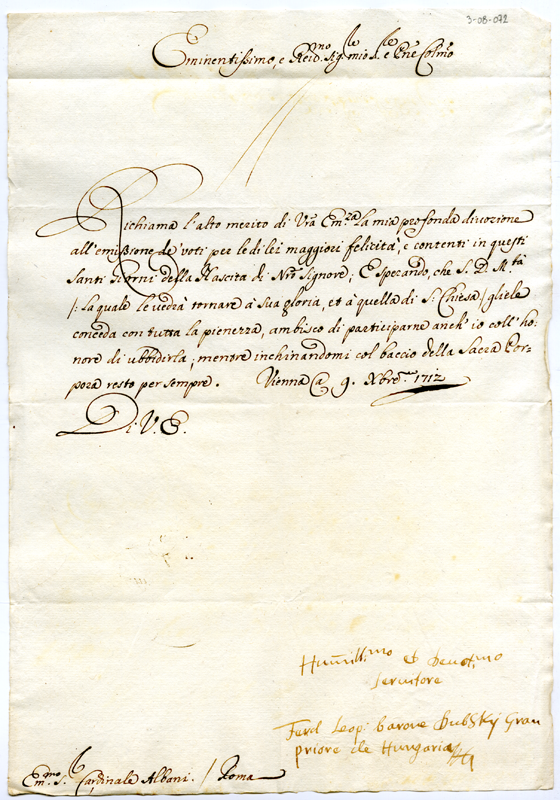 3-08-072
Eminentissimo, e Reud.mo Sig.re mio S.le e Pne Colmo
Richiama l'alto merito di Vrã Em.za la mia profonda diuozione
all'emissione de' voti per le di lei maggiori felicità, e contenti in questi
Santi Giorni della Nascita di Nrõ Signore; E sperando, che S. D. M.tà
/: la quale le uedrà tornare à sua gloria, et à quella di S. Chiesa / gliele
conceda con tutta la pienezza, ambisco di participarne anch'io coll'ho-
nore di ubbidirla; mentre inchinandomi col baccio della Sacra Por-
pora resto per sempre. Vienna a 9. Xbre 1712
Di V. E.
Humill.mo et Deuot.mo
seruitore
Ferd Leop: barone Dubskÿ Gran
priore de Hungaria
Em.mo S.r Cardinale Albani. / Roma